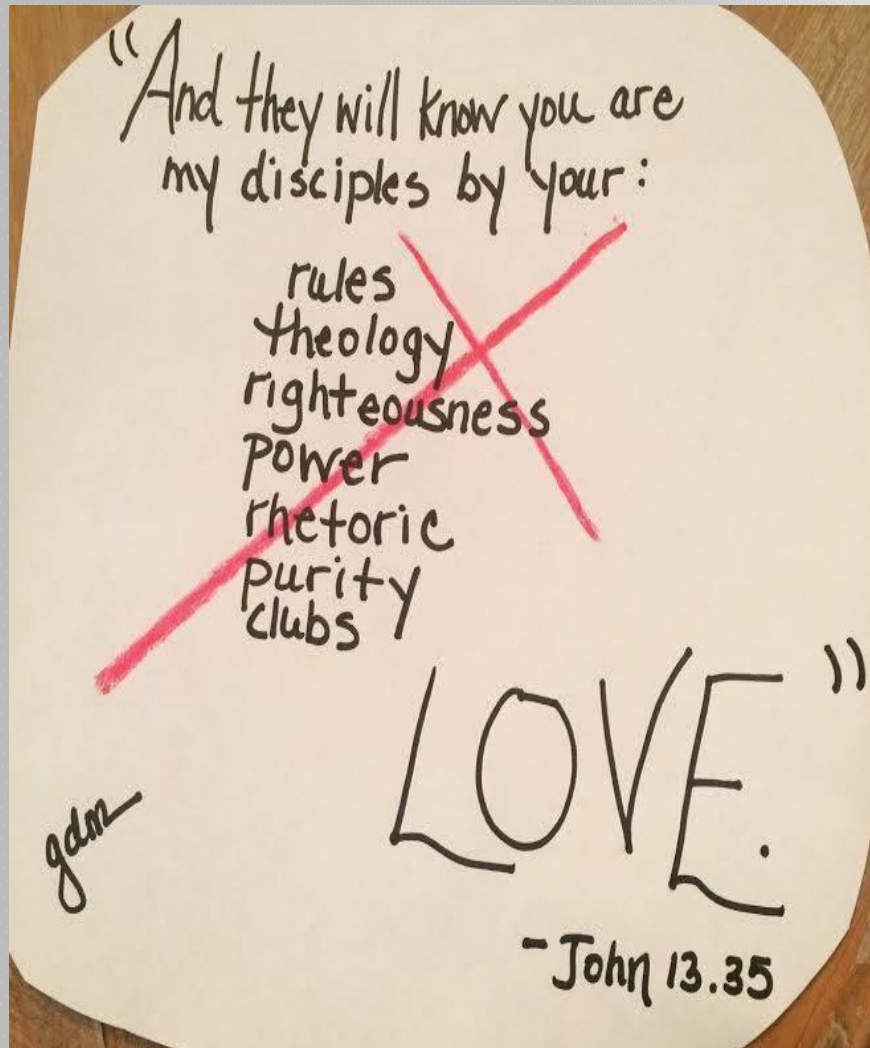 "And they will know you are
my disciples by your:
rules
theology
righteousness
power
rhetoric
purity
clubs
LOVE."
gdm
- John 13.35